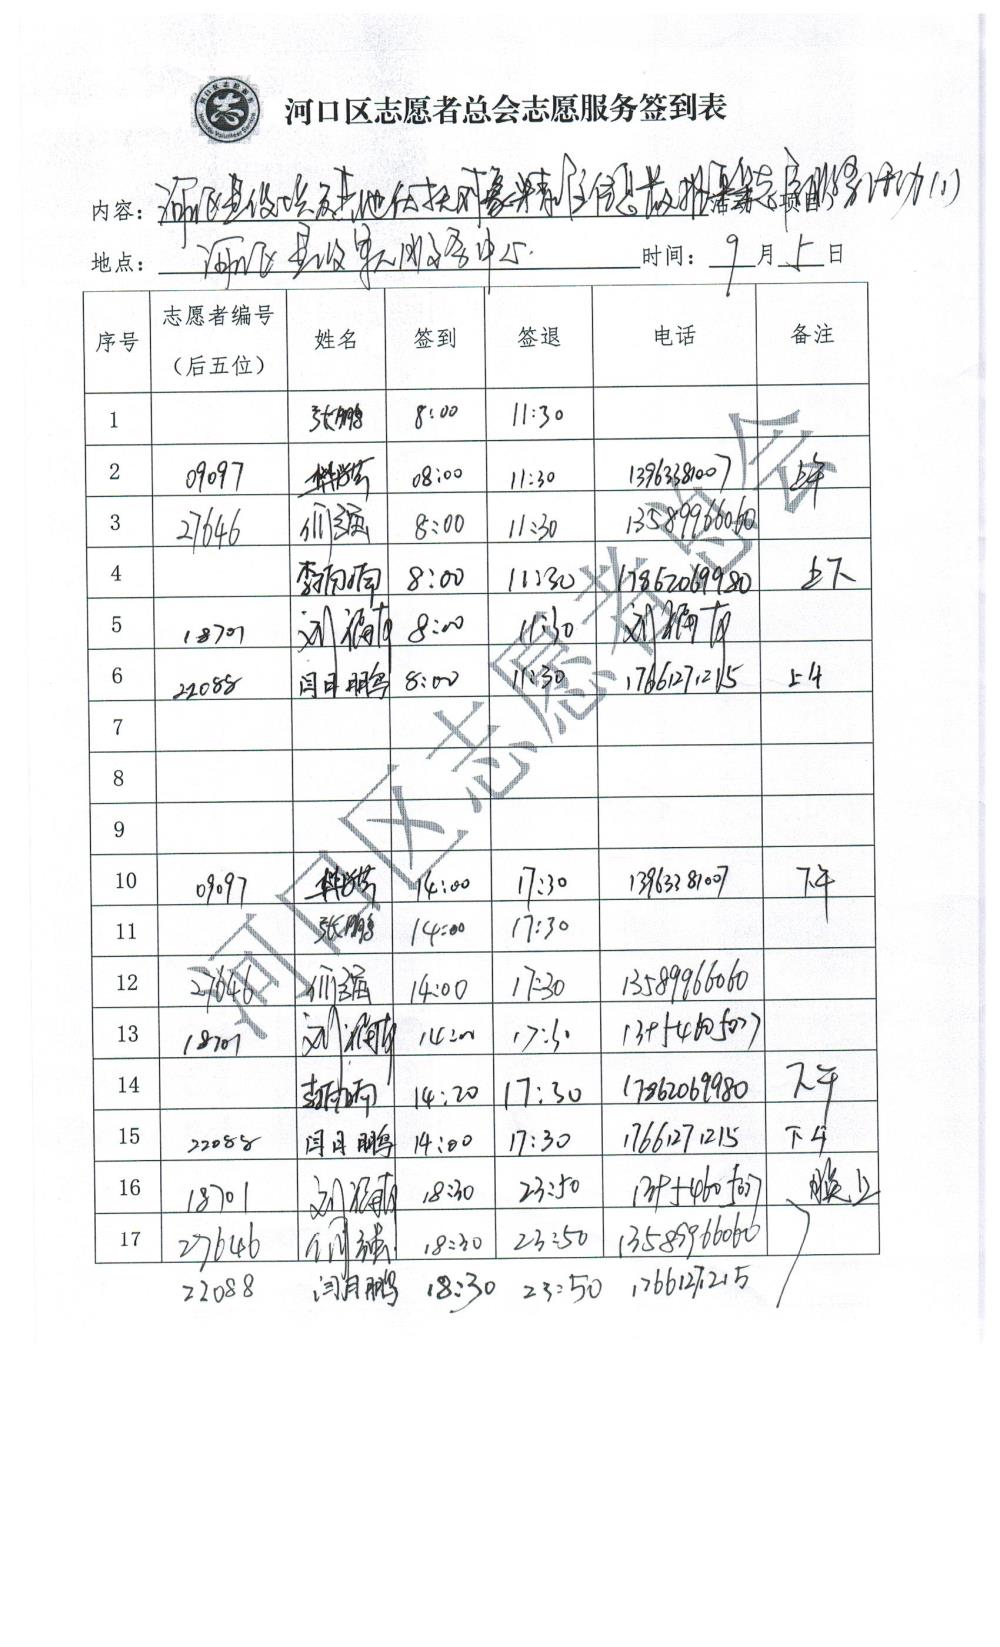 河口区志愿者总会志愿服务签到表
内容：
地点：河口区退役军人服务中心 时间：9月5日
序号 志愿者编号（后五位） 姓名 签到 签退 电话 备注
1 张鹏 8:00 11:30
2 09097 08:00 11:30 13963381007 上午
3 27646 8:00 11:30 13589966060
4 李南南 8:00 11:30 17862069980 上午
5 18701 刘福南 8:00 11:30 刘福南
6 22088 闫月鹏 8:00 11:30 17661271215 上午
7
8
9
10 09097 14:00 17:30 13963381007 下午
11 张鹏 14:00 17:30
12 27646 14:00 17:30 13589966060
13 18701 刘福南 14:00 17:30 13954605077
14 李南南 14:20 17:30 17862069980 下午
15 22088 闫月鹏 14:00 17:30 17661271215 下午
16 18701 刘福南 18:30 23:50 晚上
17 27646 18:30 23:50 13589966060
22088 闫月鹏 18:30 23:50 17661271215
河口区志愿者总会